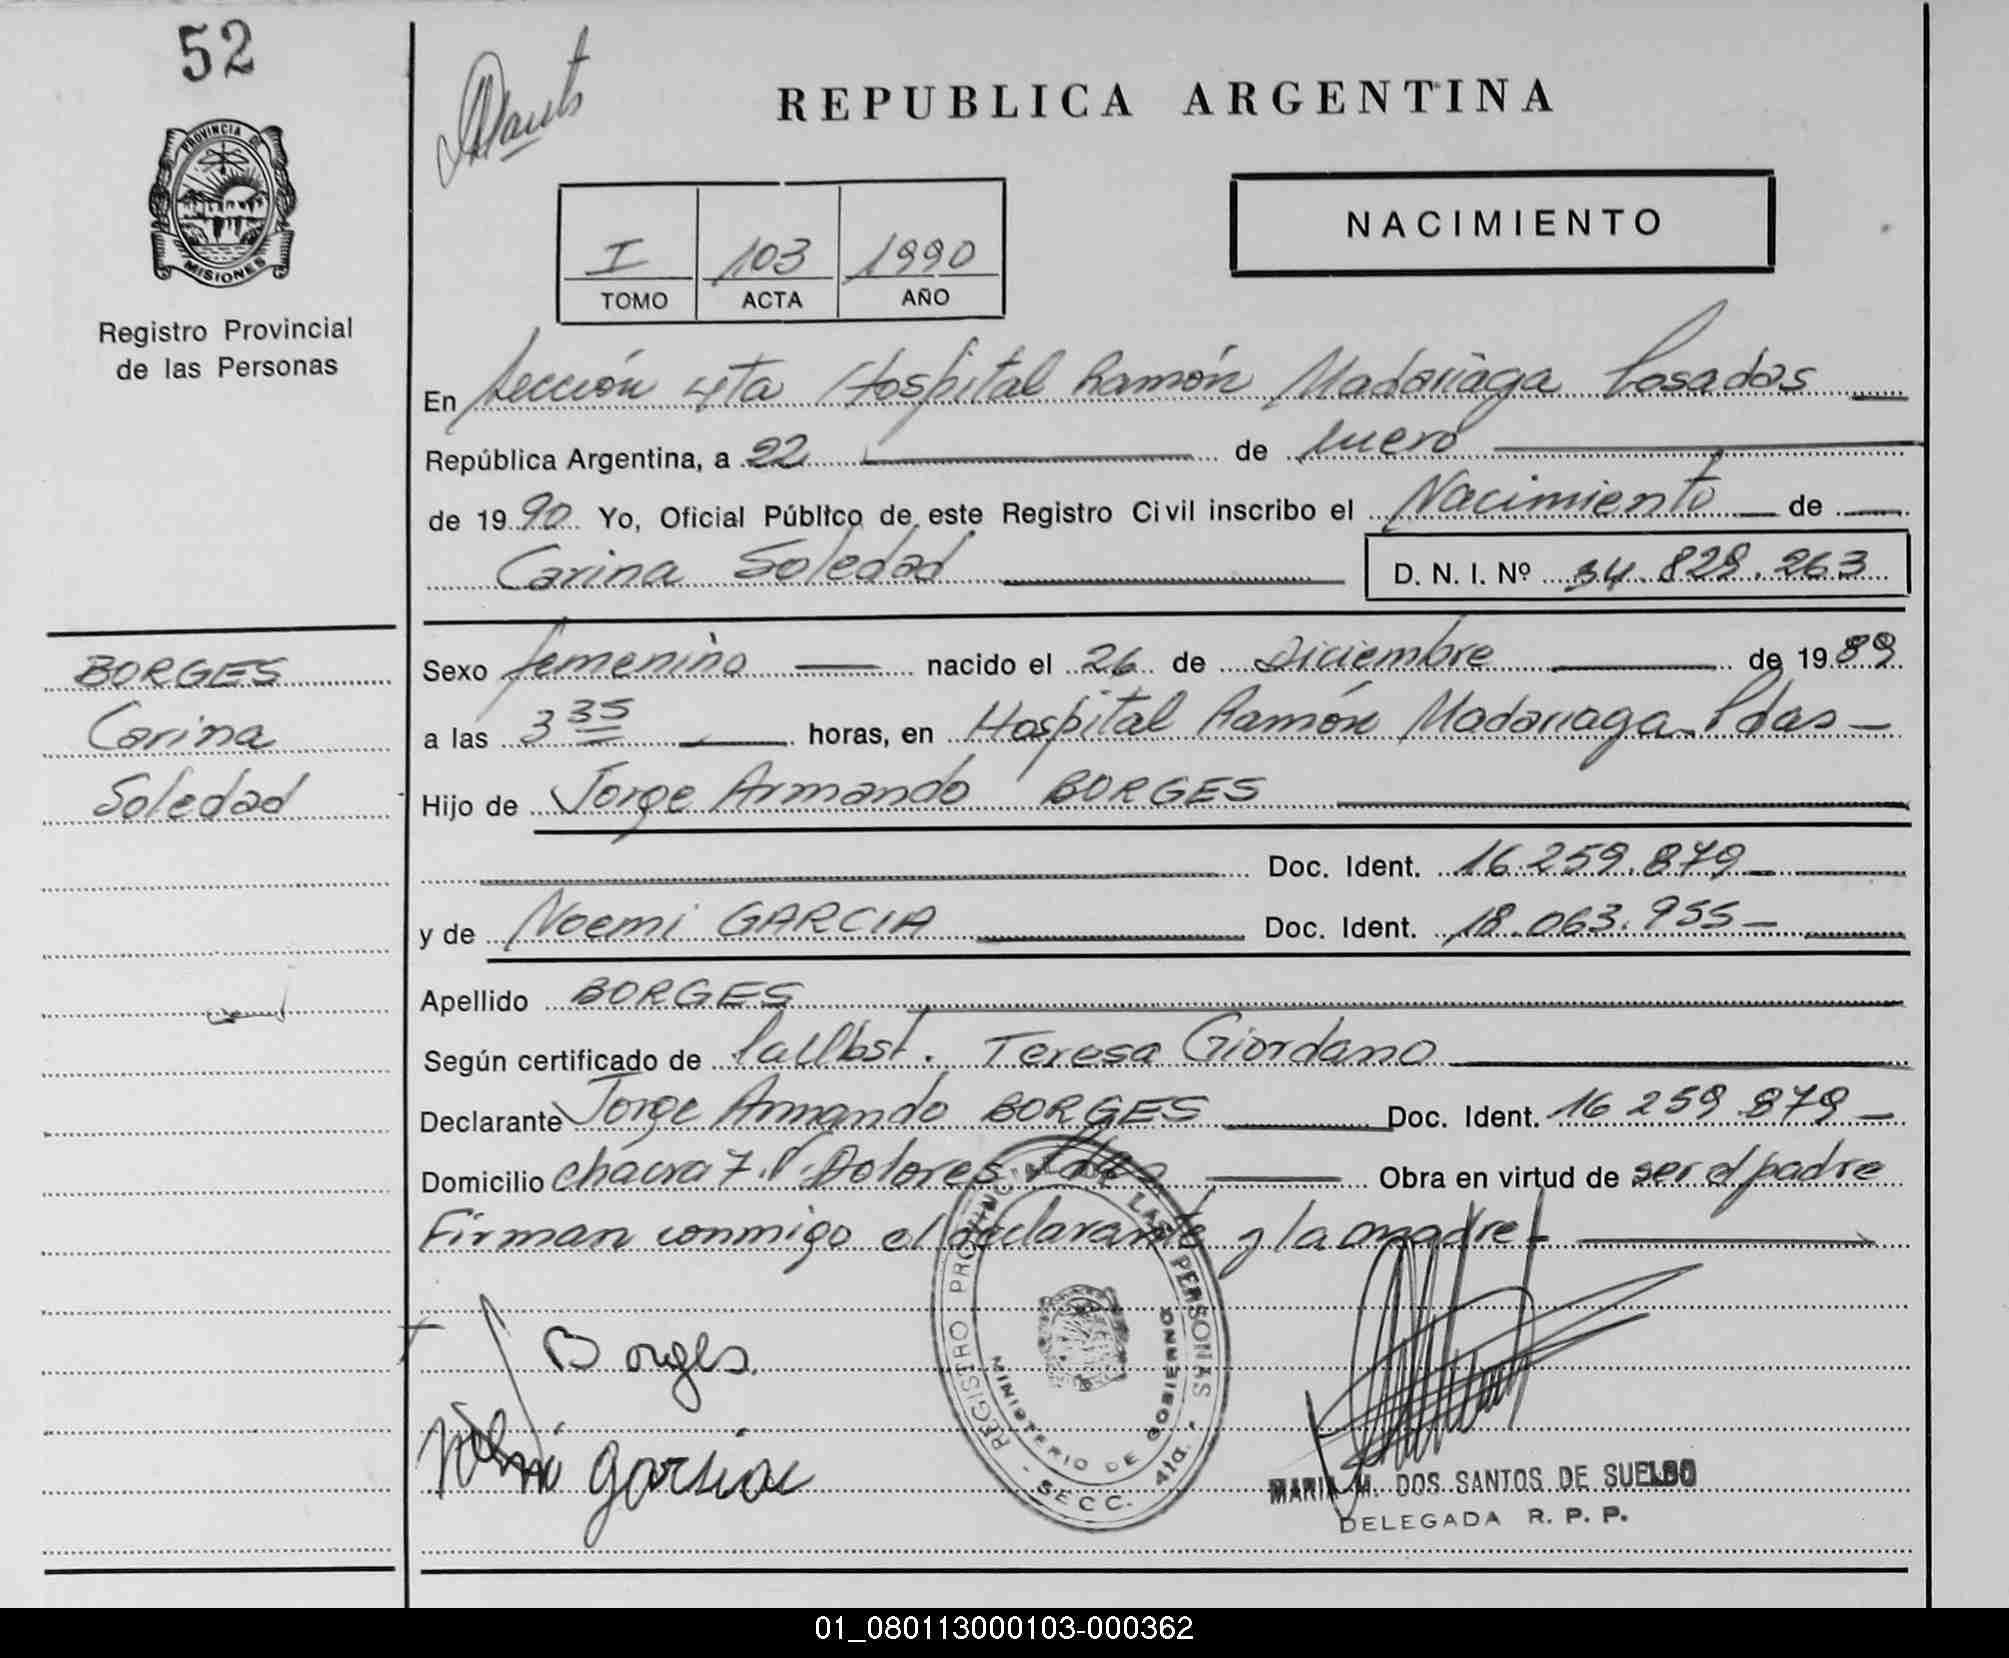 52
REPUBLICA ARGENTINA
PROVINCIA DE
MISIONES
Registro Provincial
de las Personas
NACIMIENTO
I 103 1990
TOMO ACTA AÑO
En Sección 4ta Hospital Ramón Madariaga Posadas
República Argentina, a 22 de Enero
de 1990 Yo, Oficial Público de este Registro Civil inscribo el Nacimiento de
Carina Soledad D. N. I. Nº 34.828.263
BORGES
Carina
Soledad
Sexo femenino nacido el 26 de Diciembre de 1989
a las 3 35 horas, en Hospital Ramón Madariaga Pdas
Hijo de Jorge Armando BORGES
Doc. Ident. 16.259.879
y de Noemi GARCIA Doc. Ident. 18.063.955
Apellido BORGES
Según certificado de Obst. Teresa Giordano
Declarante Jorge Armando BORGES Doc. Ident. 16 259 879
Domicilio chacra 7. V. Dolores Pdas Obra en virtud de ser el padre
Firman conmigo el declarante y la madre
Borges
garsia
REGISTRO PROVINCIAL DE LAS PERSONAS
MINISTERIO DE GOBIERNO
- SECC. 4ta. -
MARIA M. DOS SANTOS DE SUELDO
DELEGADA R. P. P.
01_080113000103-000362